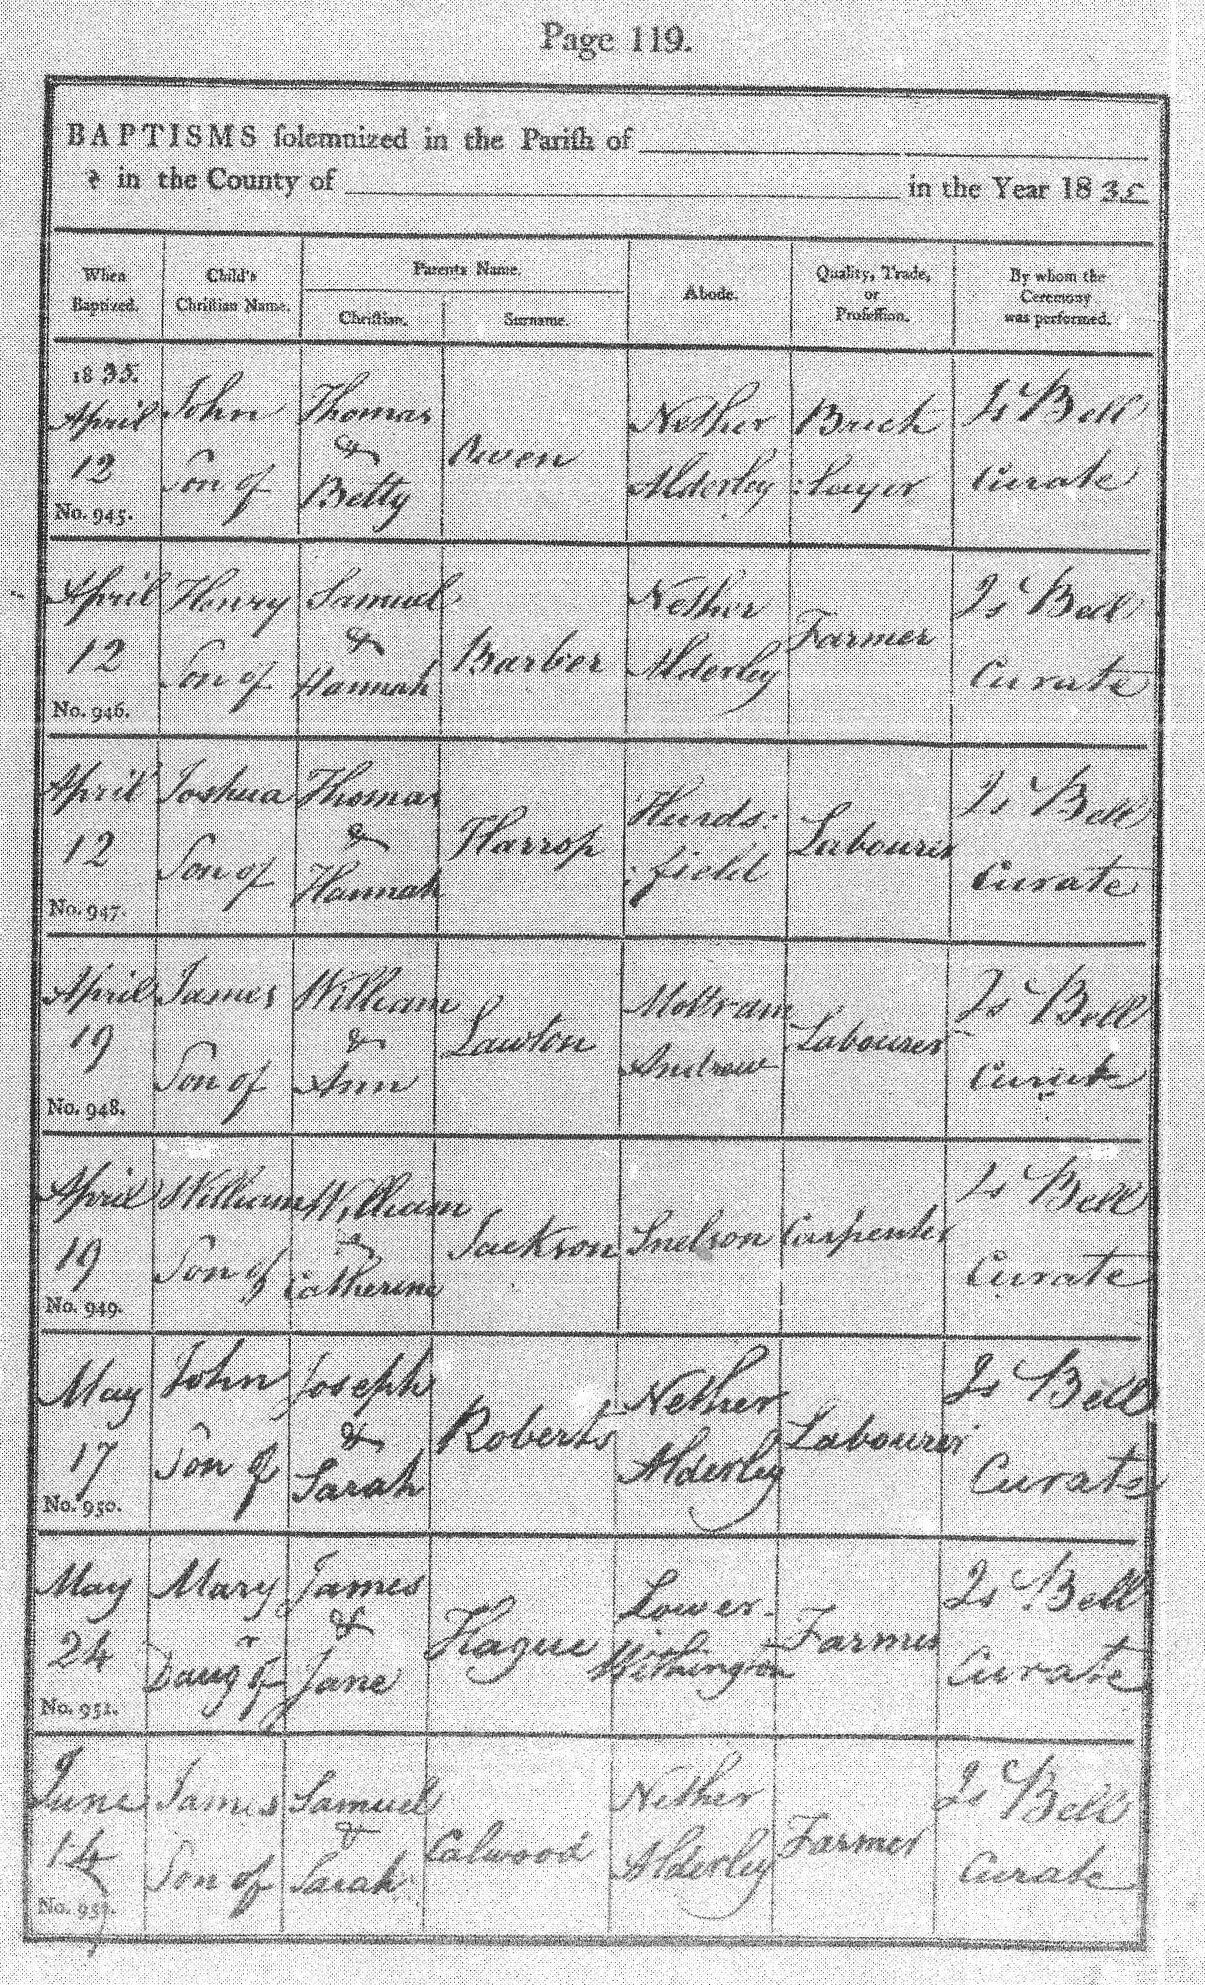 Page 119.
BAPTISMS solemnized in the Parish of
in the County of in the Year 1835
When Baptized. Child's Christian Name. Parents Name. Abode. Quality, Trade, or Profession. By whom the Ceremony was performed.
Christian. Surname.
1835.
April John Thomas Nether Brick Js Bell
& Owen
12 Son of Betty Alderley :layer Curate
No. 945.
April Henry Samuel Nether Farmer Js Bell
& Barber
12 Son of Hannah Alderley Curate
No. 946.
April Joshua Thomas Hurds: Labourer Js Bell
& Harrop
12 Son of Hannah :field Curate
No. 947.
April James William Mottram Labourer Js Bell
& Lawton
19 Son of Ann Andrew Curate
No. 948.
April William William Js Bell
& Jackson Snelson Carpenter
19 Son of Catherine Curate
No. 949.
May John Joseph Nether Labourer Js Bell
& Roberts
17 Son of Sarah Alderley Curate
No. 950.
May Mary James Lower Farmer Js Bell
& Hague
24 Daugr of Jane Withington Curate
No. 951.
June James Samuel Nether Farmer Js Bell
& Calwood
14 Son of Sarah Alderley Curate
No. 952.